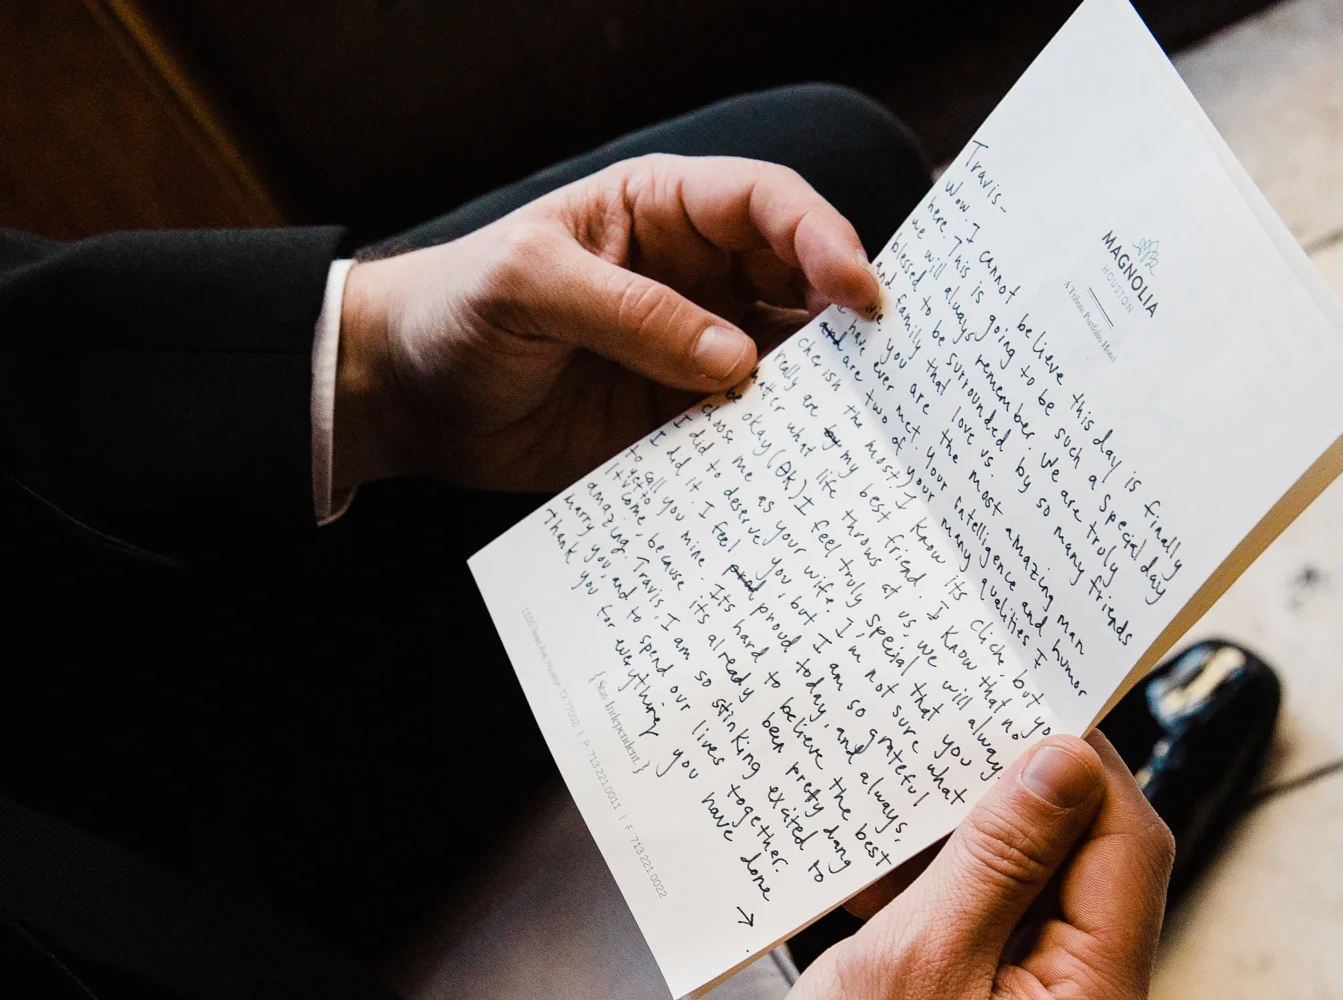 MAGNOLIA
HOUSTON
A Tribute Portfolio Hotel
Travis-
Wow. I cannot believe this day is finally
here. This is going to be such a special day
we will always remember. We are truly
blessed to be surrounded by so many friends
and family that love us.
You are the most amazing man
have ever met. Your intelligence and humor
are two of your many qualities I
cherish the most. I know its cliche, but you
really are my best friend. I know that no
matter what life throws at us, we will always
be okay (OK) I feel truly special that you
choose me as your wife. I'm not sure what
I did to deserve you, but I am so grateful
I did it. I feel proud today, and always,
to call you mine. Its hard to believe the best
is yet to come, because its already been pretty dang
amazing. Travis, I am so stinking excited to
marry you and to spend our lives together.
Thank you for everything you have done
→
{Stay Independent.}
1100 Texas Ave. Houston, TX 77002 | P: 713.221.0011 | F: 713.221.0022